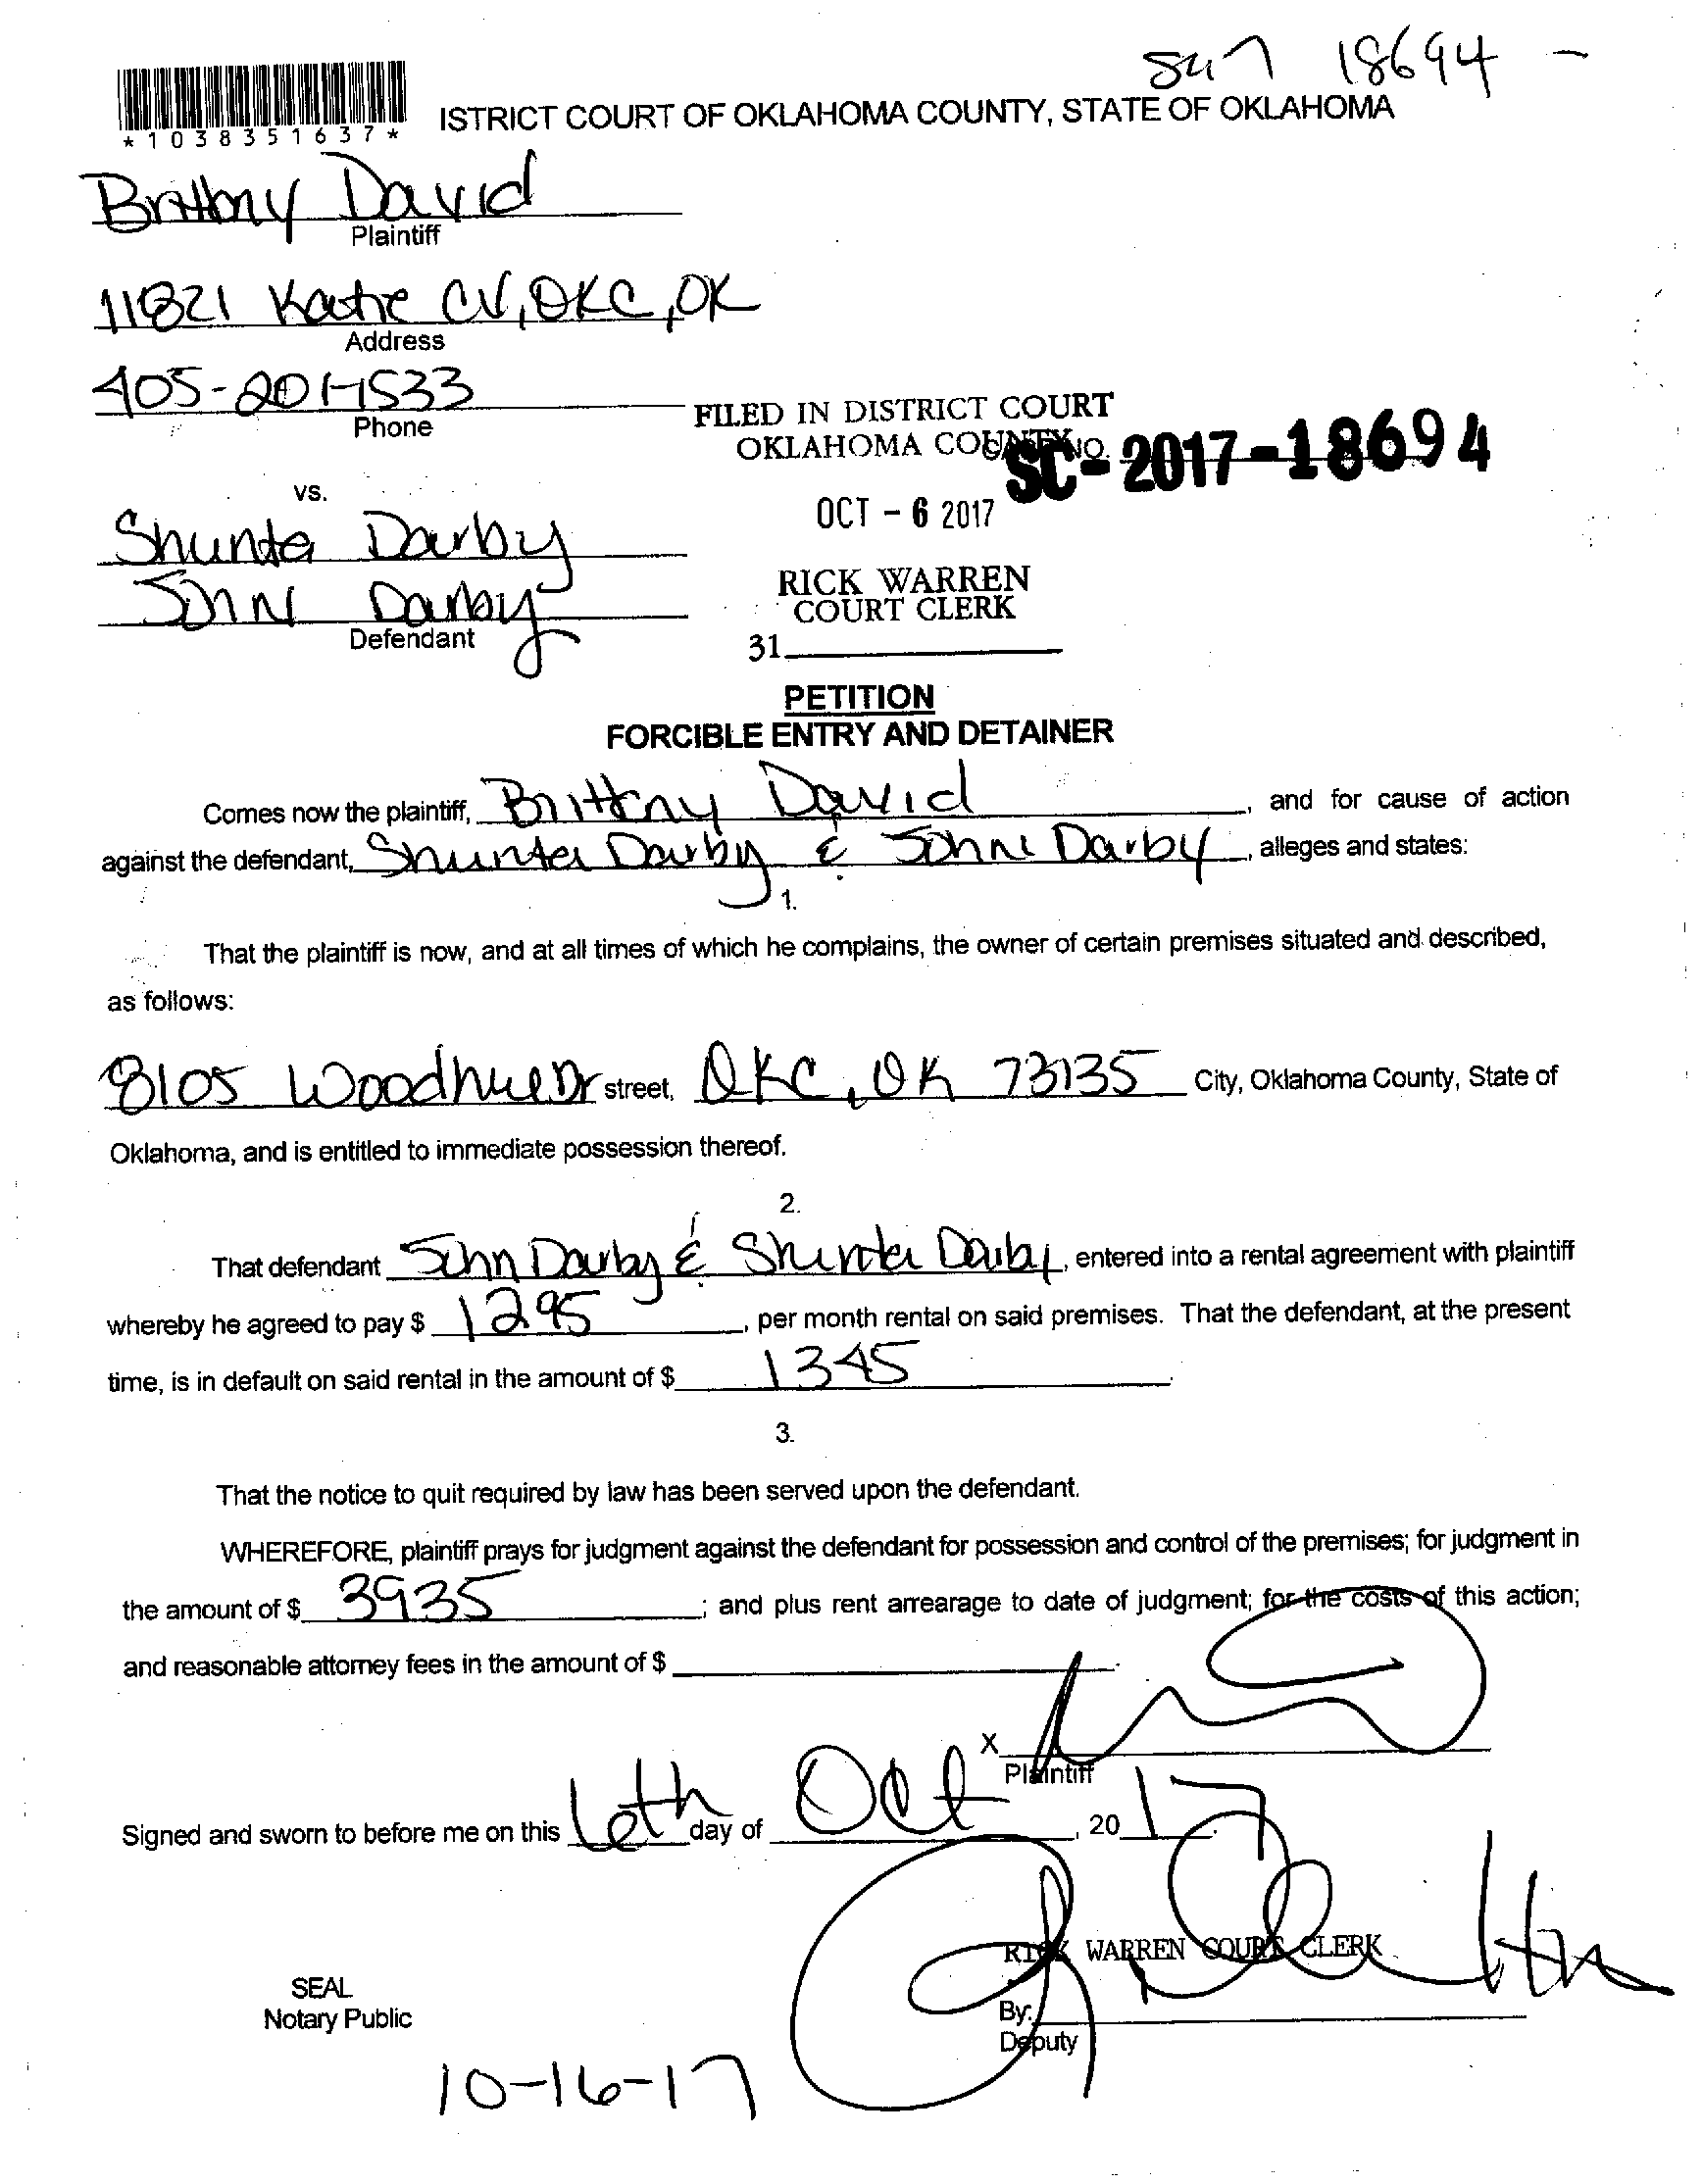 Su7 18694 -
*1038351637*
ISTRICT COURT OF OKLAHOMA COUNTY, STATE OF OKLAHOMA
Brittany David
Plaintiff
11821 Katie CV, OKC, OK
Address
405-201-1533
Phone
FILED IN DISTRICT COURT
OKLAHOMA COUNTY NO.
SC-2017-18694
vs.
OCT - 6 2017
Shunta Darby
John Darby
Defendant
RICK WARREN
COURT CLERK
31
PETITION
FORCIBLE ENTRY AND DETAINER
Comes now the plaintiff, Brittany David, and for cause of action
against the defendant, Shunta Darby & John Darby, alleges and states:
1.
That the plaintiff is now, and at all times of which he complains, the owner of certain premises situated and described,
as follows:
8105 Woodhue Dr street, OKC, OK 73135 City, Oklahoma County, State of
Oklahoma, and is entitled to immediate possession thereof.
2.
That defendant John Darby & Shunta Darby, entered into a rental agreement with plaintiff
whereby he agreed to pay $ 1295, per month rental on said premises. That the defendant, at the present
time, is in default on said rental in the amount of $ 1345.
3.
That the notice to quit required by law has been served upon the defendant.
WHEREFORE, plaintiff prays for judgment against the defendant for possession and control of the premises; for judgment in
the amount of $ 3935; and plus rent arrearage to date of judgment; for the costs of this action;
and reasonable attorney fees in the amount of $
X
Plaintiff
Signed and sworn to before me on this 6th day of Oct, 20 17.
RICK WARREN COURT CLERK
SEAL
Notary Public
By:
Deputy
10-16-17